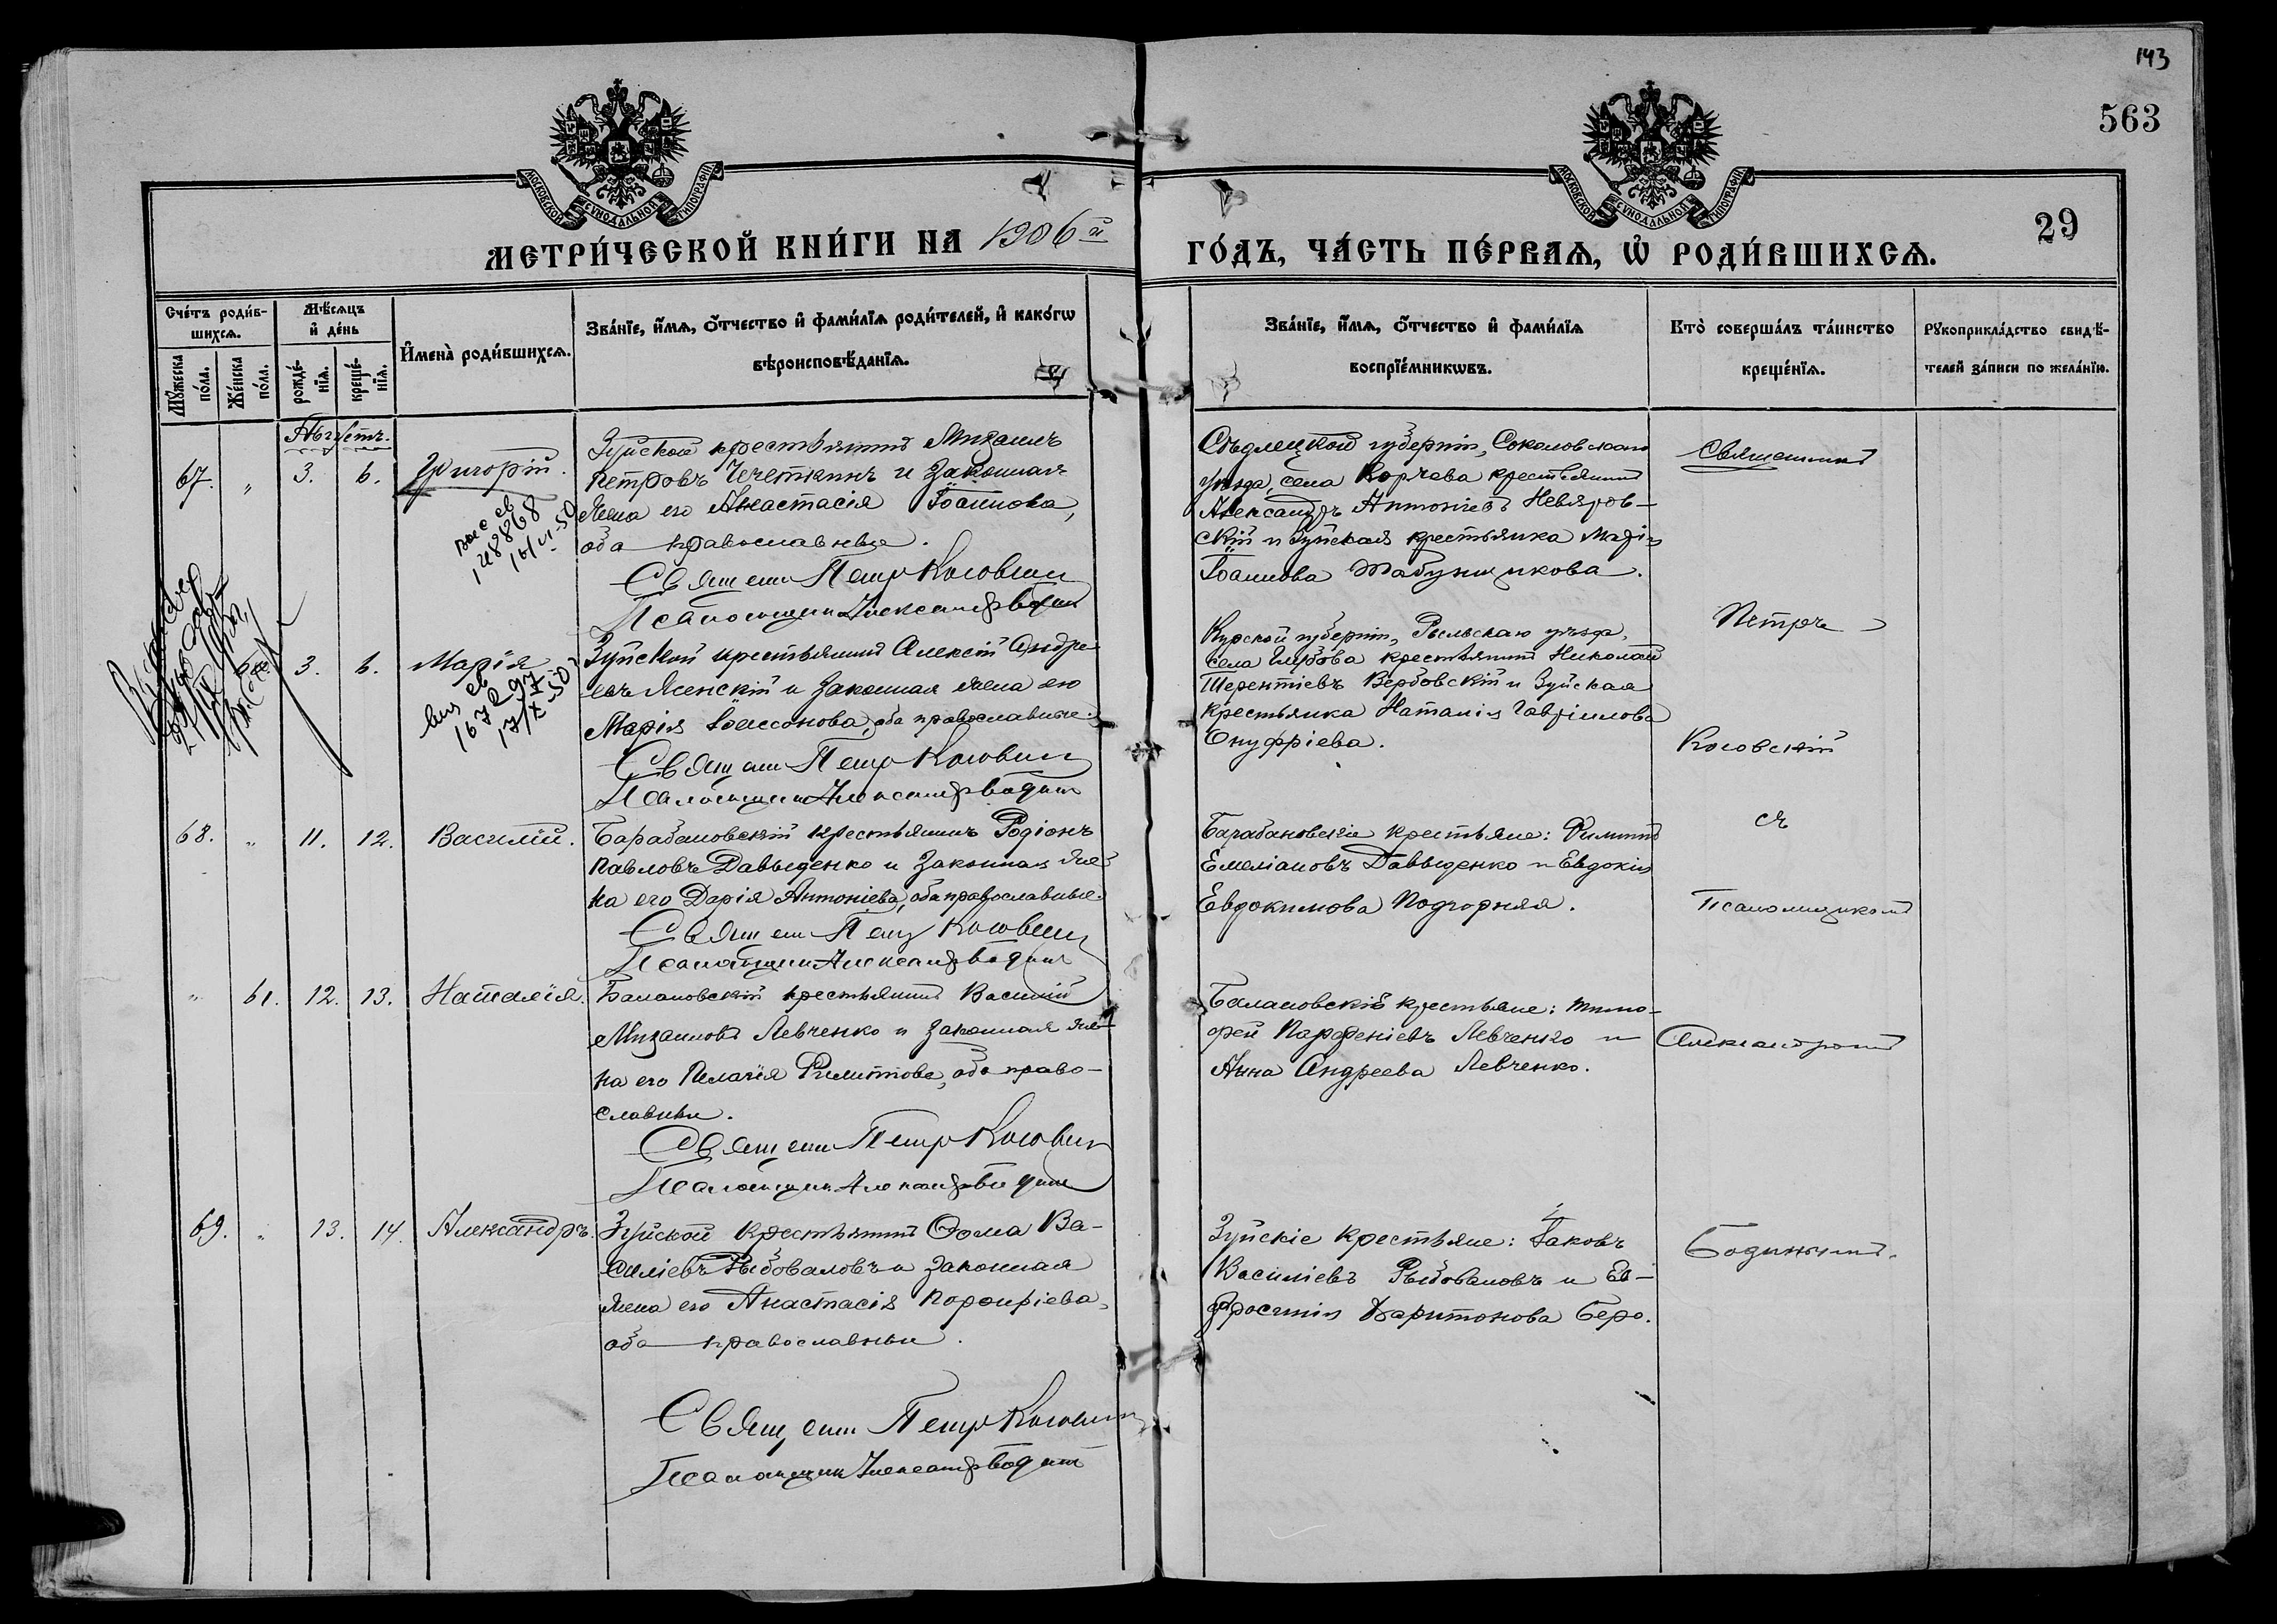 143
563
29
МОСКОВСКОЙ СѴНОДАЛЬНОЙ ТИПОГРАФІИ
МОСКОВСКОЙ СѴНОДАЛЬНОЙ ТИПОГРАФІИ
МЕТРИ́ЧЕСКОЙ КНИ́ГИ НА 1906й
ГО́ДЪ, ЧА́СТЬ ПЕ́РВАѦ, Ѡ҆ РОДИ́ВШИХСѦ.
Сче́тъ роди́в-
шихсѧ.
Мꙋ́жеска по́ла.
Же́нска по́ла.
Мѣ́сѧцъ
и҆ де́нь
рожде́-
нїѧ.
креще́-
нїѧ.
И҆мена̀ роди́вшихсѧ.
Зва́нїе, и҆́мѧ, ѻ҆́тчество и҆ фами́лїѧ роди́телей, и҆ како́гѡ
вѣроисповѣ́данїѧ.
Зва́нїе, и҆́мѧ, ѻ҆́тчество и҆ фами́лїѧ
воспрїе́мникѡвъ.
Кто̀ соверша́лъ та́инство
креще́нїѧ.
Рꙋкоприкла́дство свидѣ́-
телей за́писи по жела́нїю.
Августъ.
67. " 3. 6. Григорій.
Зуйской крестьянинъ Михаилъ
Петровъ Чечеткинъ и законная
жена его Анастасія Іоаннова,
оба православные.
Священ Петр Коговский
Псаломщик Александр Бодин
Сѣдлецкой губерніи, Соколовскаго
уѣзда, села Корчева крестьянинъ
Александръ Антоніевъ Невяров-
скій и Зуйская крестьянка Марія
Іоаннова Табунщикова.
Священникъ
128868
16/VI-50
3. 6. Марія
Зуйской крестьянинъ Алексій Андре-
евъ Ясенскій и законная жена его
Марія Іоассонова, оба православные.
Священ Петр Коговский
Псаломщик Александр Бодин
Курской губерніи, Рыльскаго уѣзда,
села Глубова крестьянинъ Николай
Терентіевъ Вербовскій и Зуйская
крестьянка Наталія Гавріилова
Онуфріева.
Петръ
Коговскій
167297
17/X-50
68. " 11. 12. Василій.
Барабановскій крестьянинъ Родіонъ
Павловъ Давыденко и законная же-
на его Дарія Антоніева, оба православные.
Священ Петр Коговский
Псаломщик Александр Бодин
Барабановскіе крестьяне: Филиппъ
Емеліановъ Давыденко и Евдокія
Евдокимова Подгорняя.
съ
Псаломщикомъ
" 61. 12. 13. Наталія.
Балановскій крестьянинъ Василій
Михаиловъ Левченко и законная же-
на его Пелагія Филиппова, оба право-
славные.
Священ Петр Коговский
Псаломщик Александр Бодин
Балановскіе крестьяне: Тимо-
фей Парфеніевъ Левченко и
Анна Андреева Левченко.
Александромъ
69. " 13. 14. Александръ.
Зуйской крестьянинъ Ѳома Ва-
силіевъ Рыбоваловъ и законная
жена его Анастасія Порфиріева,
оба православные.
Священ Петр Коговский
Псаломщик Александр Бодин
Зуйскіе крестьяне: Іаковъ
Василіевъ Рыбоваловъ и Ев-
фросинія Харитонова Беро.
Бодинымъ.